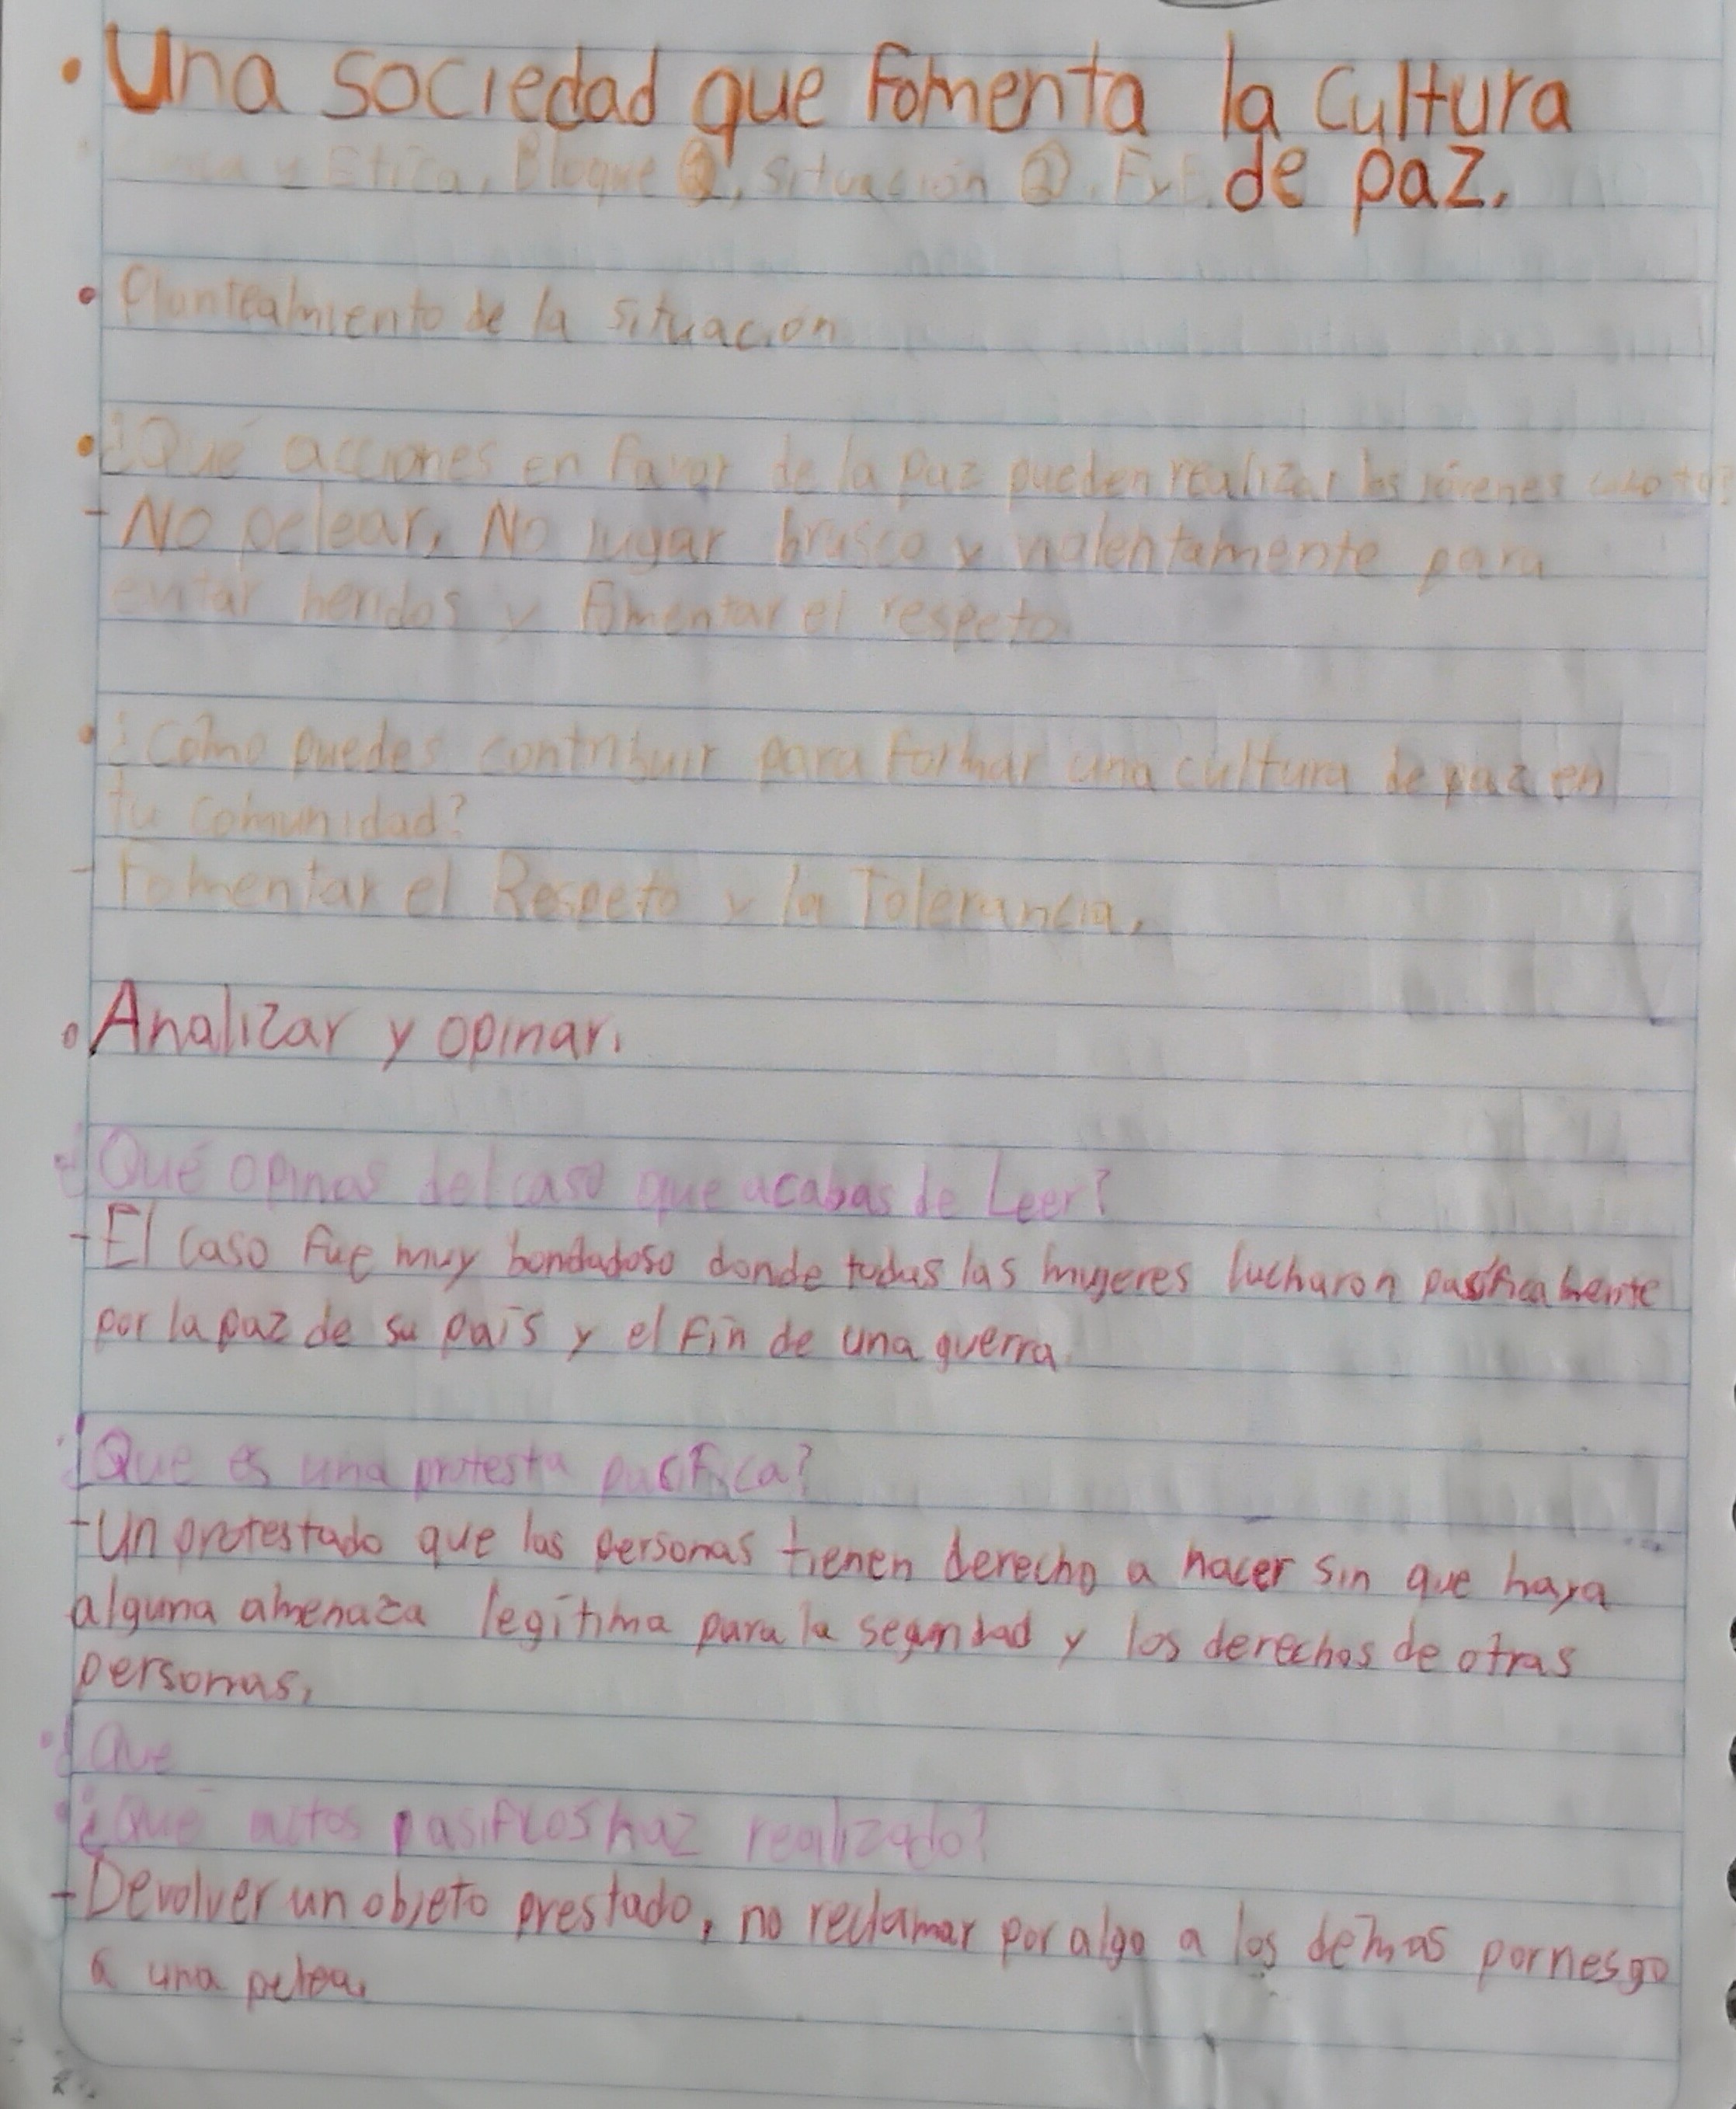 • Una sociedad que fomenta la cultura
de paz.
y Etica, Bloque ②, Situación ②. FyE.
• Planteamiento de la situación
• ¿Qué acciones en favor de la paz pueden realizar los jóvenes
- No pelear, No jugar brusco y violentamente para
evitar heridos y fomentar el respeto
• ¿Cómo puedes contribuir para formar una cultura de paz en
tu comunidad?
- Fomentar el Respeto y la Tolerancia.
• Analizar y opinar.
¿Qué opinas del caso que acabas de Leer?
- El caso fue muy bondadoso donde todas las mujeres lucharon pasificamente
por la paz de su país y el fin de una guerra
¿Que es una protesta pacífica?
- Un protestado que las personas tienen derecho a hacer sin que haya
alguna amenaza legítima para la seguridad y los derechos de otras
personas.
• ¿Que
¿Qué actos pasificos haz realizado?
- Devolver un objeto prestado, no reclamar por algo a los demas por riesgo
a una pelea.